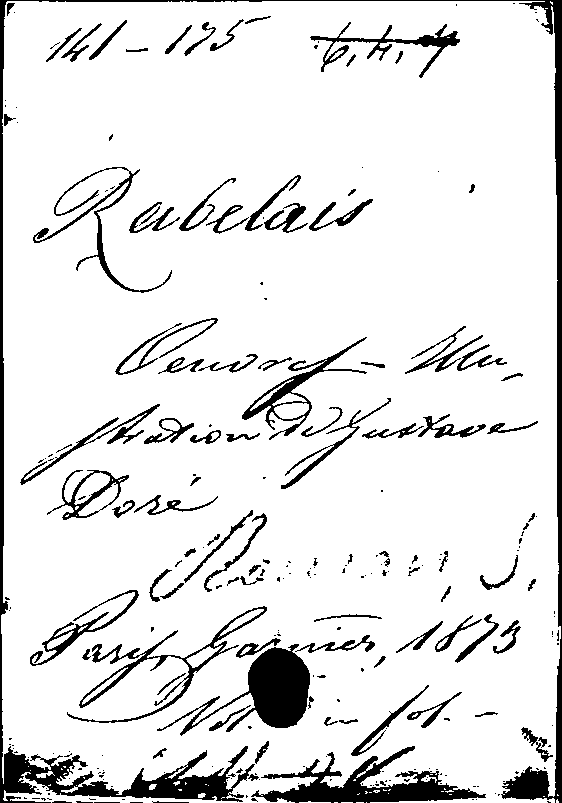 141-175 6.4.4
Rabelais
Oeuvres - Illu-
stration de Gustave
Doré
Roman, S.
Paris, Garnier, 1873
Vol. in fol. -